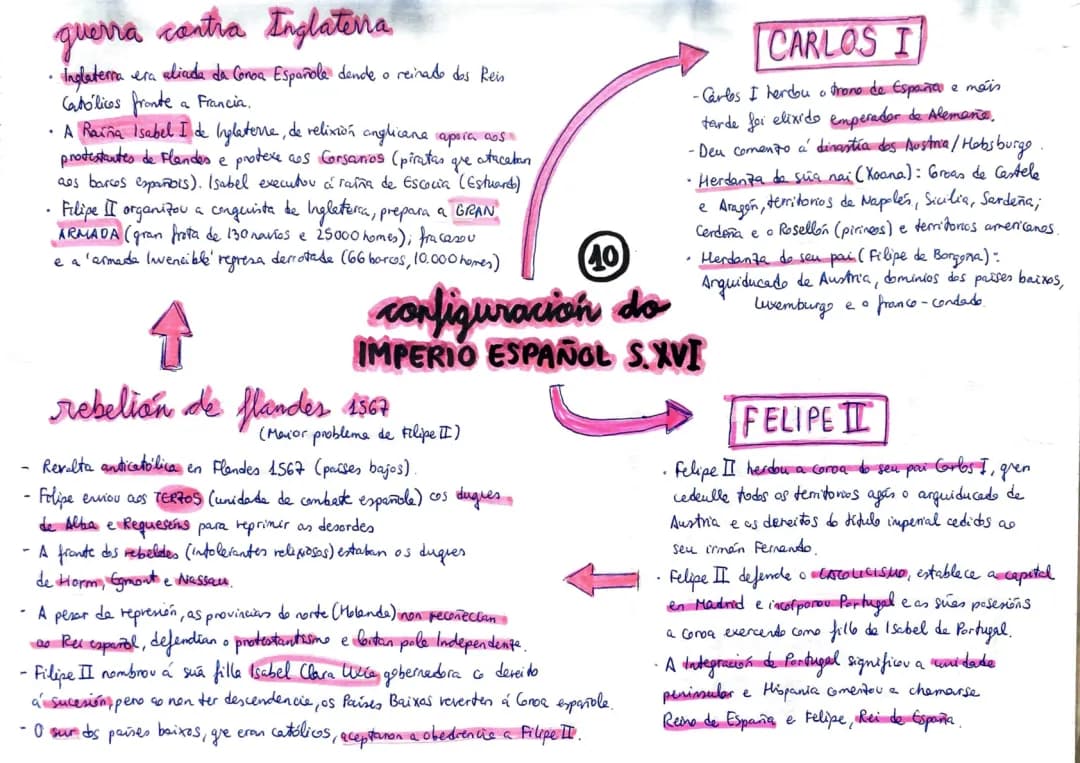 10
configuración do
IMPERIO ESPAÑOL S.XVI
CARLOS I
- Carlos I herdou o trono de España e máis
tarde foi elixido emperador de Alemaña.
- Deu comenzo á dinastía dos Austria/Habsburgo.
· Herdanza da súa nai (Xoana): Coroas de Castela
e Aragón, territorios de Napoles, Sicilia, Sardeña;
Cerdeña e o Rosellón (pirineos) e territorios americanos.
· Herdanza do seu pai (Filipe de Borgoña):
Arquiducado de Austria, dominios dos países baixos,
Luxemburgo e o franco-condado.
FELIPE II
· Felipe II herdou a coroa do seu pai Carlos I, quen
cedeulle todos os territorios agás o arquiducado de
Austria e os dereitos do título imperial cedidos ao
seu irmán Fernando.
· Felipe II defende o CATOLICISMO, establece a capital
en Madrid e incorporou Portugal e as súas posesións
a coroa exercendo como fillo de Isabel de Portugal.
· A Integración de Portugal significou a unidade
peninsular e Hispania comenzou a chamarse
Reino de España e Felipe, Rei de España.
rebelión de flandes 1567
(Maior problema de Filipe II)
- Revolta anticatólica en Flandes 1567 (países bajos).
- Felipe enviou aos TERZOS (unidade de combate española) cos duques
de Alba e Requeséns para reprimir as desordes
- A fronte dos rebeldes (intolerantes relixiosos) estaban os duques
de Horm, Egmont e Nassau.
- A pesar da represión, as provincias do norte (Holanda) non recoñecían
ao Rei español, defendían o protestantismo e loitan pola Independenza.
- Filipe II nombrou á súa filla Isabel Clara Uxía gobernadora co dereito
á sucesión, pero ao non ter descendencia, os Países Baixos reverten á Coroa española.
- O sur dos países baixos, que eran católicos, aceptaron a obediencia a Filipe II.
guerra contra Inglaterra
· Inglaterra era aliada da Coroa Española dende o reinado dos Reis
Católicos fronte a Francia.
· A Raíña Isabel I de Inglaterra, de relixión anglicana apoia aos
protestantes de Flandes e protexe aos Corsarios (piratas que atacaban
aos barcos españois). Isabel executou á raíña de Escocia (Estuardo)
· Filipe II organizou a conquista de Inglaterra, prepara a GRAN
ARMADA (gran frota de 130 navíos e 25000 homes); fracasou
e a 'armada Invencible' regresa derrotada (66 barcos, 10.000 homes)